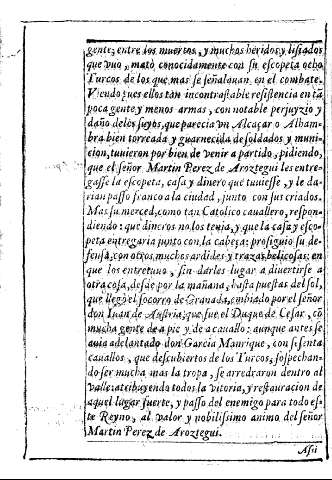 gente, entre los muertos, y muchos heridos y lisiados
que vuo, matò conocidamente con su escopeta ocho
Turcos de los que mas se señalauan en el combate.
Viendo pues ellos tan incontrastable resistencia en tã
poca gente y menos armas, con notable perjuyzio y
daño de los suyos, que parecia vn Alcaçar o Alham-
bra bien torreada y guarnecida de soldados y muni-
cion, tuuieron por bien de venir a partido, pidiendo,
que el señor Martin Perez de Aroztegui les entre-
gasse la escopeta, casa y dinero que tuuiesse, y le da-
rian passo franco a la ciudad, junto con sus criados.
Mas su merced, como tan Catolico cauallero, respon-
diendo: que dineros no los tenia, y que la casa y esco-
peta entregaria junto con la cabeça: prosiguio su de-
fensa, con otros muchos ardides y trazas belicosas: en
que los entretuuo, sin darles lugar a diuertirse a
otra cosa, desde por la mañana, hasta puestas del sol,
que llegò el socorro de Granada, embiado por el señor
don Iuan de Austria; que fue el Duque de Cesar, cõ
mucha gente de a pie y de a cauallo: aunque antes se
auia adelantado don Garcia Manrique, con sesenta
cauallos, que descubiertos de los Turcos, sospechan-
do ser mucha mas la tropa, se arredraron dentro al
valle: atribuyendo todos la vitoria, y restauracion de
aquel lugar fuerte, y passo del enemigo para todo es-
te Reyno, al valor y nobilissimo animo del señor
Martin Perez de Aroztegui.
Assi